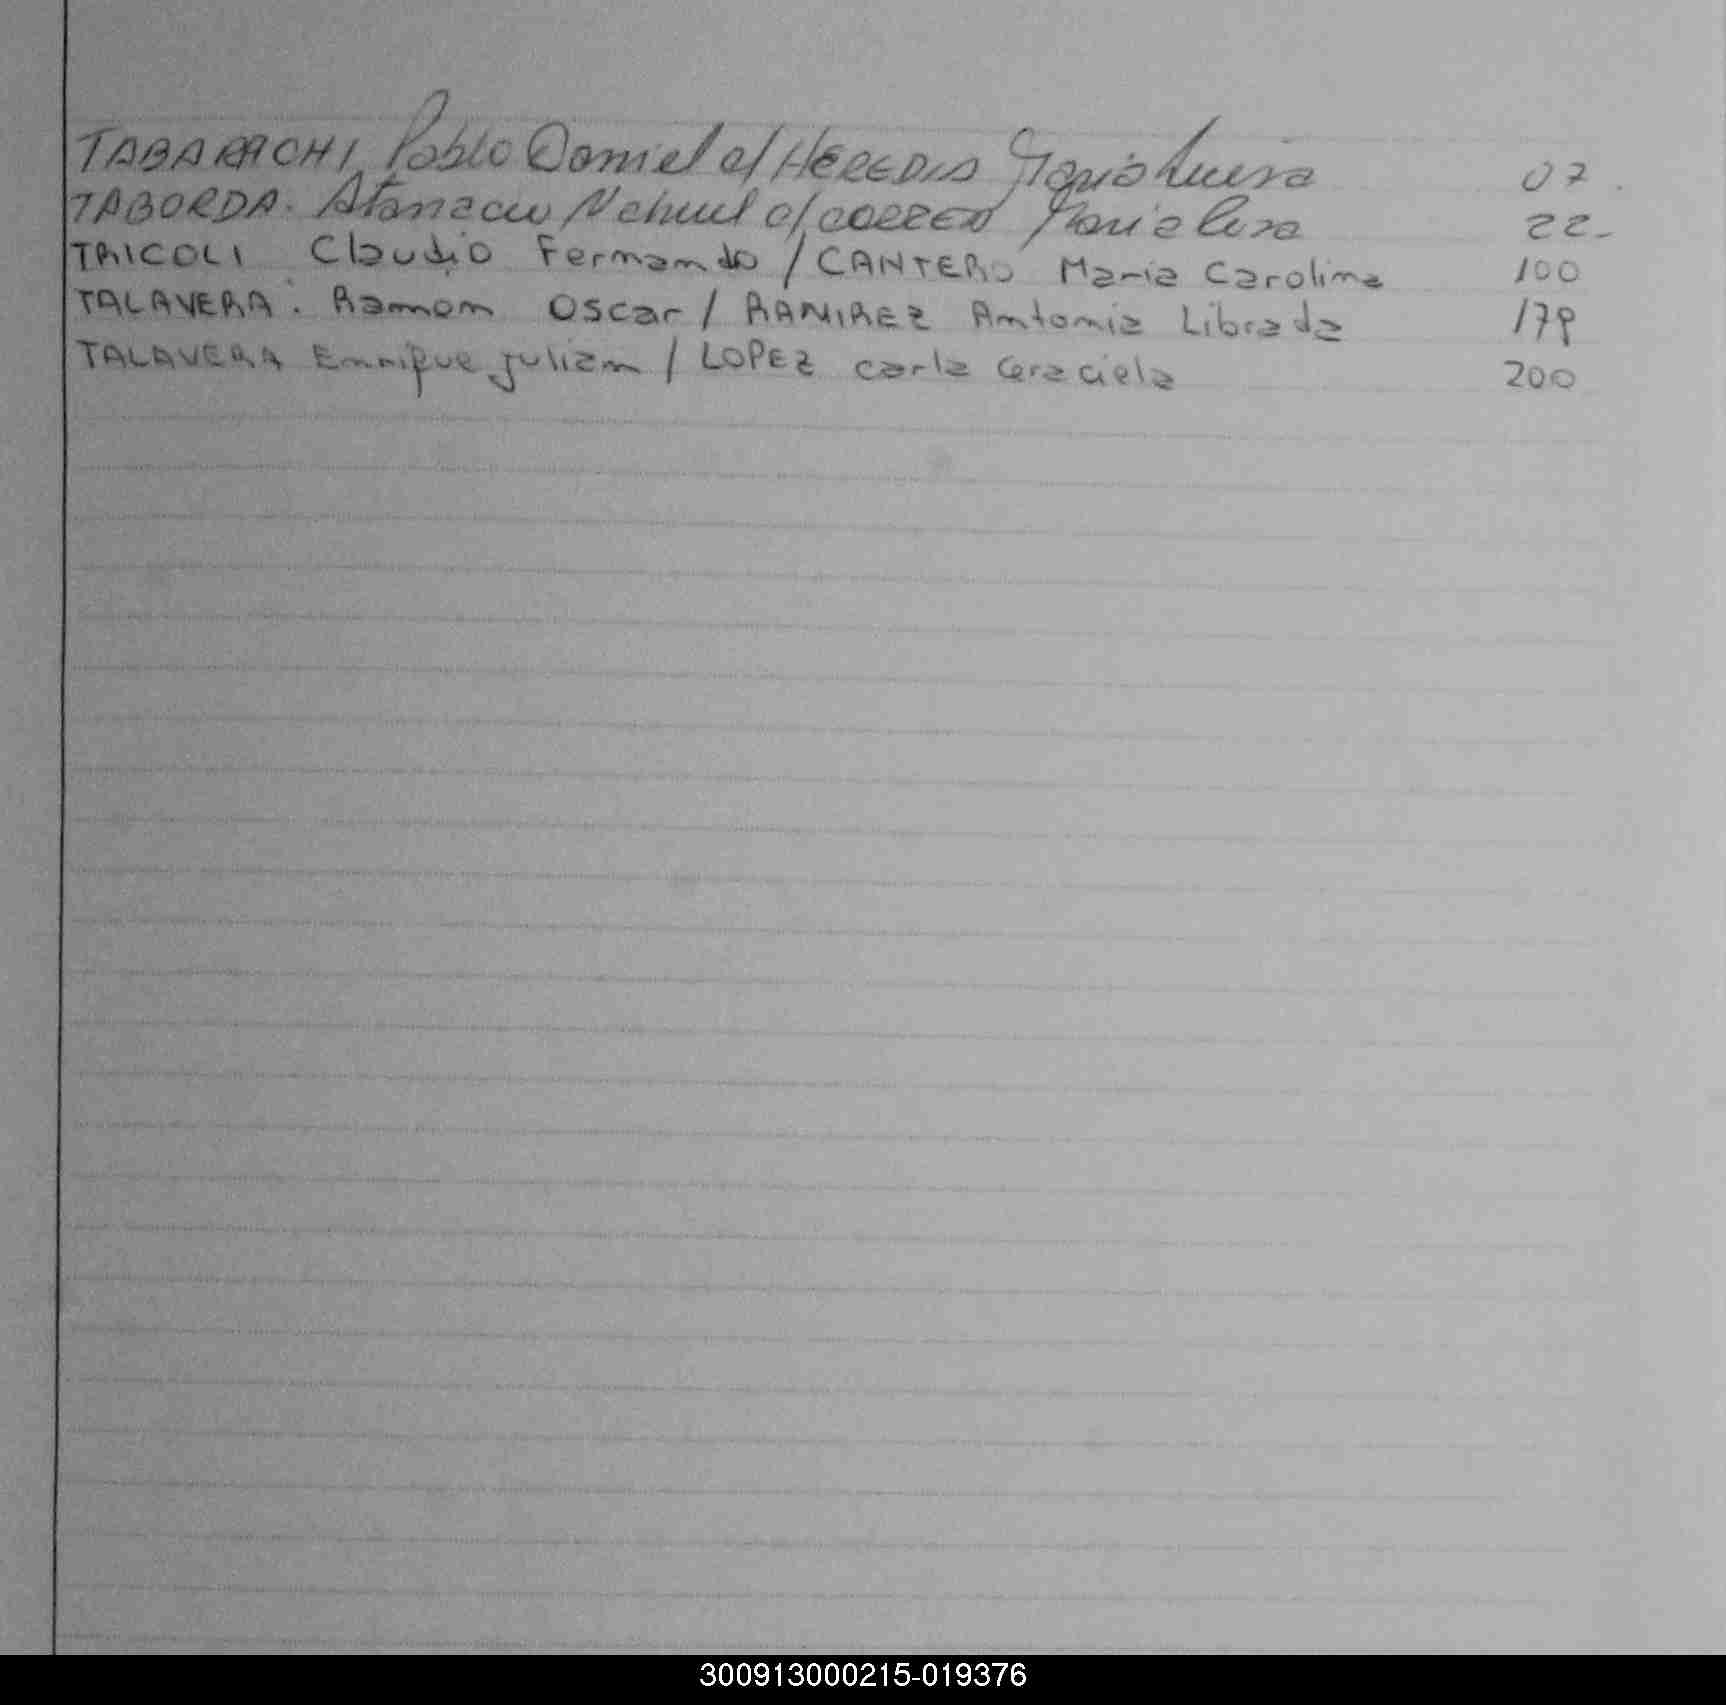 TABARACHI, Pablo Daniel c/ HEREDIA Maria Luisa 07.
TABORDA. Atanacio Nahuel c/ CORREA Maria Luisa 22-
TRICOLI Claudio Fernando / CANTERO Maria Carolina 100
TALAVERA: Ramon Oscar / RAMIREZ Antonia Librada 179
TALAVERA Enrrique Julian / LOPEZ Carla Graciela 200
300913000215-019376